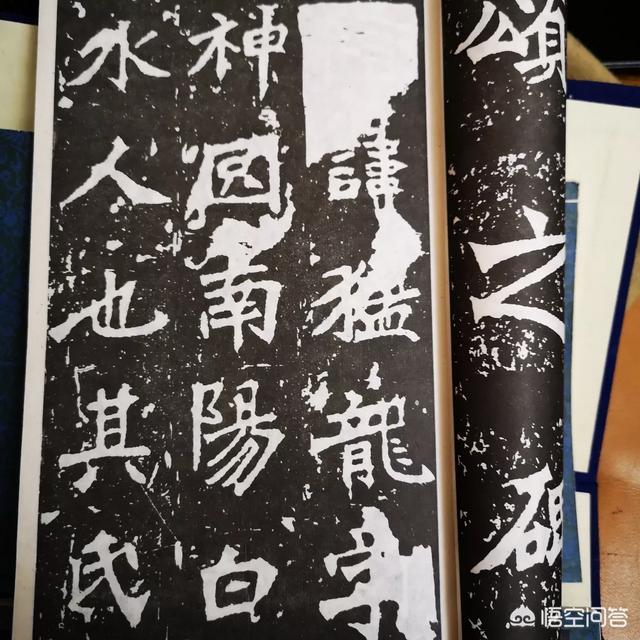 頌之碑
諱猛龍字
神囧南陽白
水人也其氏
悟空问答